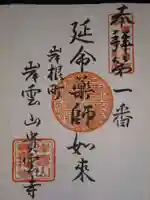 奉拝第一番
延命薬師如来
岸根町
岸雲山貴雲寺